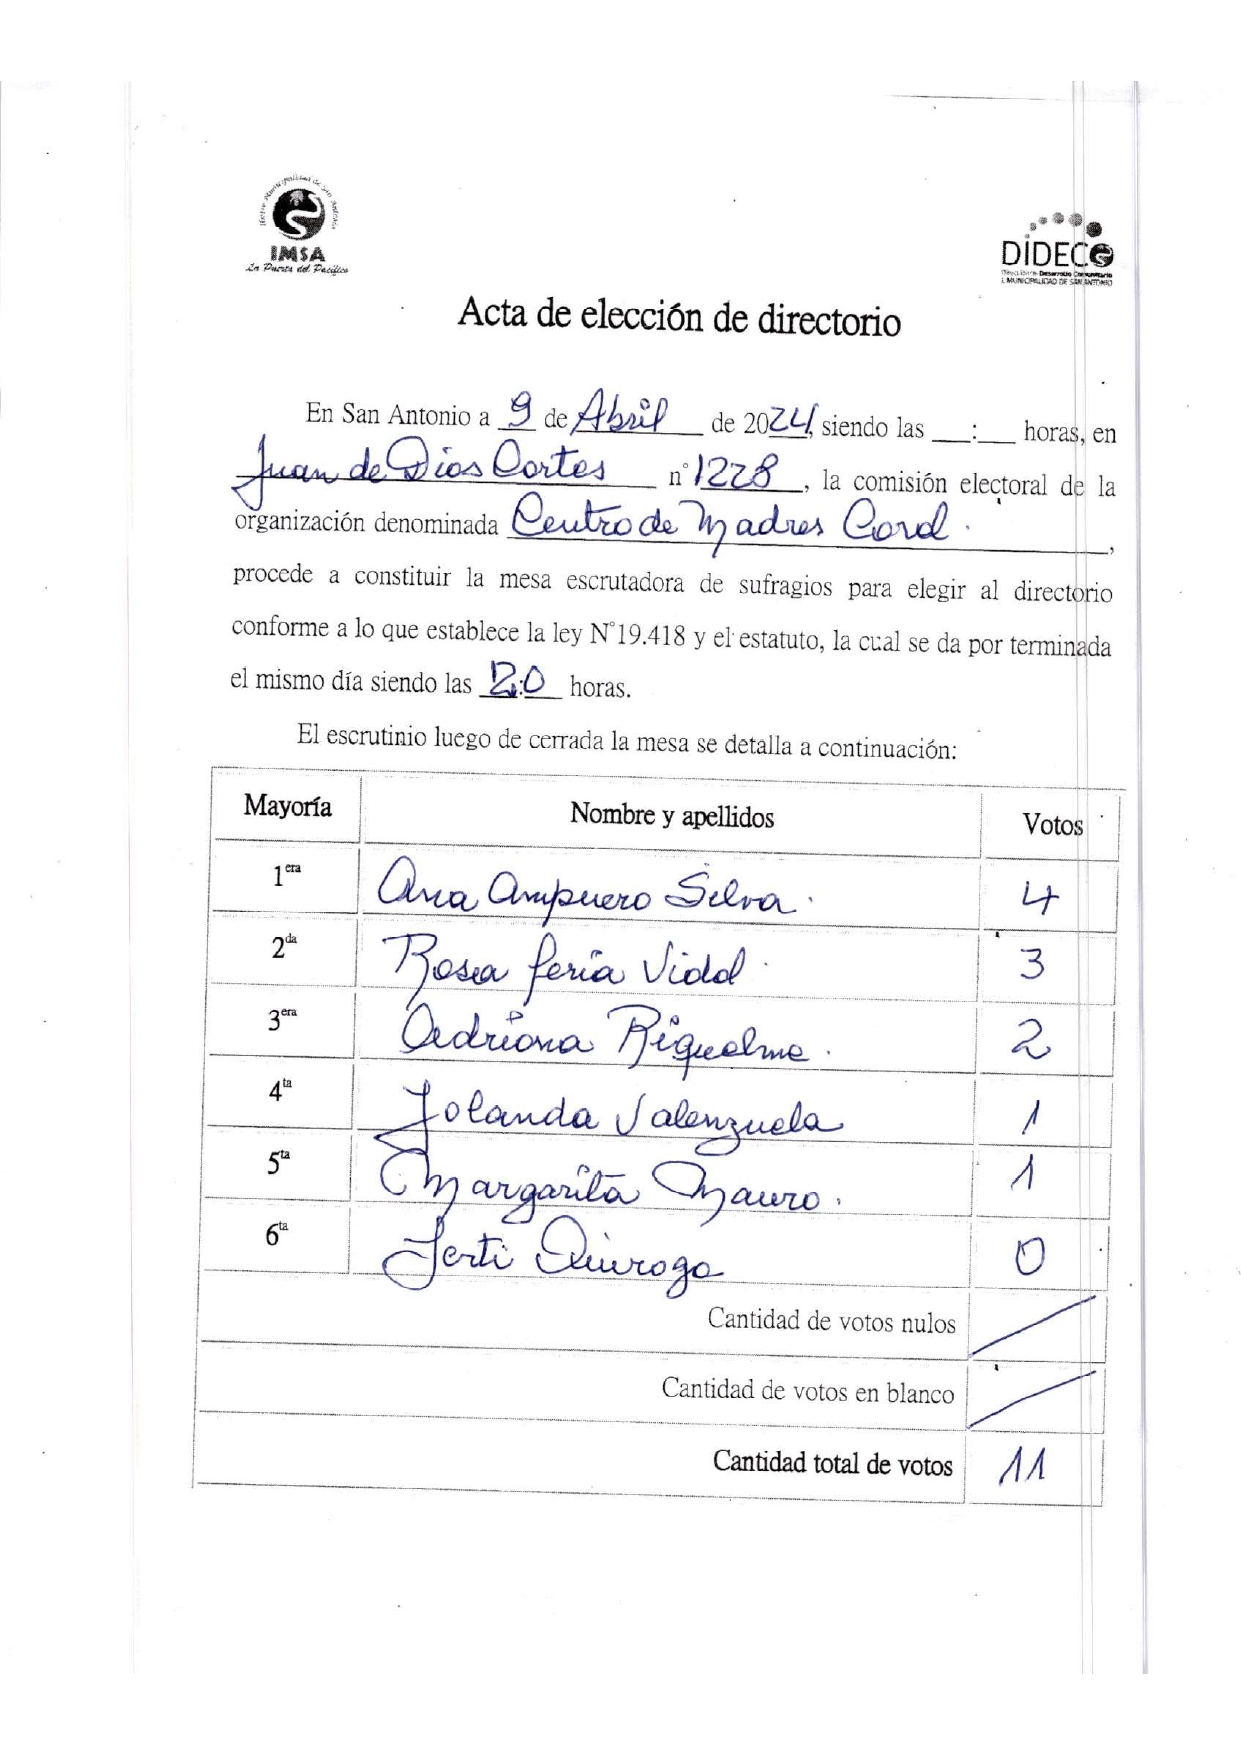 Ilustre Municipalidad de San Antonio
IMSA
La Puerta del Pacífico
DIDECO
Dirección de Desarrollo Comunitario
I. MUNICIPALIDAD DE SAN ANTONIO
Acta de elección de directorio
En San Antonio a 9 de Abril de 2024, siendo las ___:___ horas, en
Juan de Dios Cortes n° 1228, la comisión electoral de la
organización denominada Centro de Madres Coral.,
procede a constituir la mesa escrutadora de sufragios para elegir al directorio
conforme a lo que establece la ley N°19.418 y el estatuto, la cual se da por terminada
el mismo día siendo las 2:0 horas.
El escrutinio luego de cerrada la mesa se detalla a continuación:
Mayoría Nombre y apellidos Votos
1era Ana Ampuero Silva. 4
2da Rosa feria Vidal. 3
3era Adriana Riquelme. 2
4ta Yolanda Valenzuela 1
5ta Margarita Mauro. 1
6ta Jerti Quiroga 0
Cantidad de votos nulos
Cantidad de votos en blanco
Cantidad total de votos 11